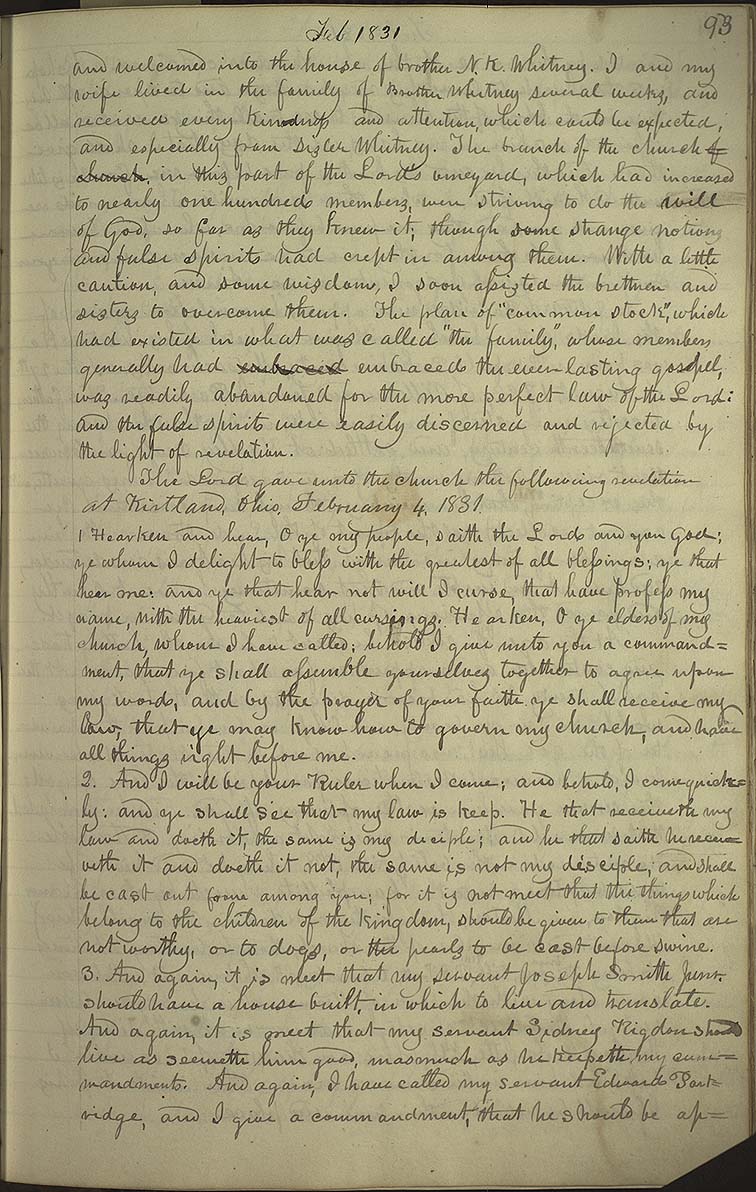 Feb 1831
93
and welcomed into the house of brother N. K. Whitney. I and my
wife lived in the family of Brother Whitney several weeks, and
received every kindness and attention, which could be expected,
and especially from Sister Whitney. The branch of the church of
church, in this part of the Lord's vineyard, which had increased
to nearly one hundreds members, were striving to do the will
of God, so far as they knew it; though some strange notions
and false spirits had crept in among them. With a little
caution, and some wisdom, I soon assisted the brethren and
sisters to overcome them. The plan of "common stock", which
had existed in what was called "the family", whose members
generally had embraced embraced the everlasting gospel,
was readily abandoned for the more perfect law of the Lord:
and the false spirits were easily discerned and rejected by
the light of revelation.
The Lord gave unto the church the following revelation
at Kirtland, Ohio, February 4, 1831.
1 Hearken and hear, O ye my people, saith the Lord and you God;
ye whom I delight to bless with the greatest of all blessings; ye that
hear me: and ye that hear not will I curse, that have profess my
name, with the heaviest of all cursings. Hearken, O ye elders of my
church, whom I have called; behold I give unto you a command=
ment, that ye shall assemble yourselves together to agree upon
my words, and by the prayer of your faith ye shall receive my
law, that ye may know how to govern my church, and have
all things right before me.
2. And I will be your Ruler when I come; and behold, I come quick=
ly: and ye shall see that my law is keep. He that receiveth my
law and doeth it, the same is my deciple; and he that saith he recei=
veth it and doeth it not, the same is not my desciple, and shall
be cast out from among you; for it is not meet that the things which
belong to the children of the kingdom, should be given to them that are
not worthy, or to dogs, or the pearls to be cast before swine.
3. And again, it is meet that my servant Joseph Smith Junr.
should have a house built, in which to live and translate.
And again, it is meet that my servant Sidney Rigdon should
live as seemeth him good, inasmuch as he keepeth my com=
mandments. And again, I have called my servant Edward Part=
ridge, and I give a commandment, that he should be ap=